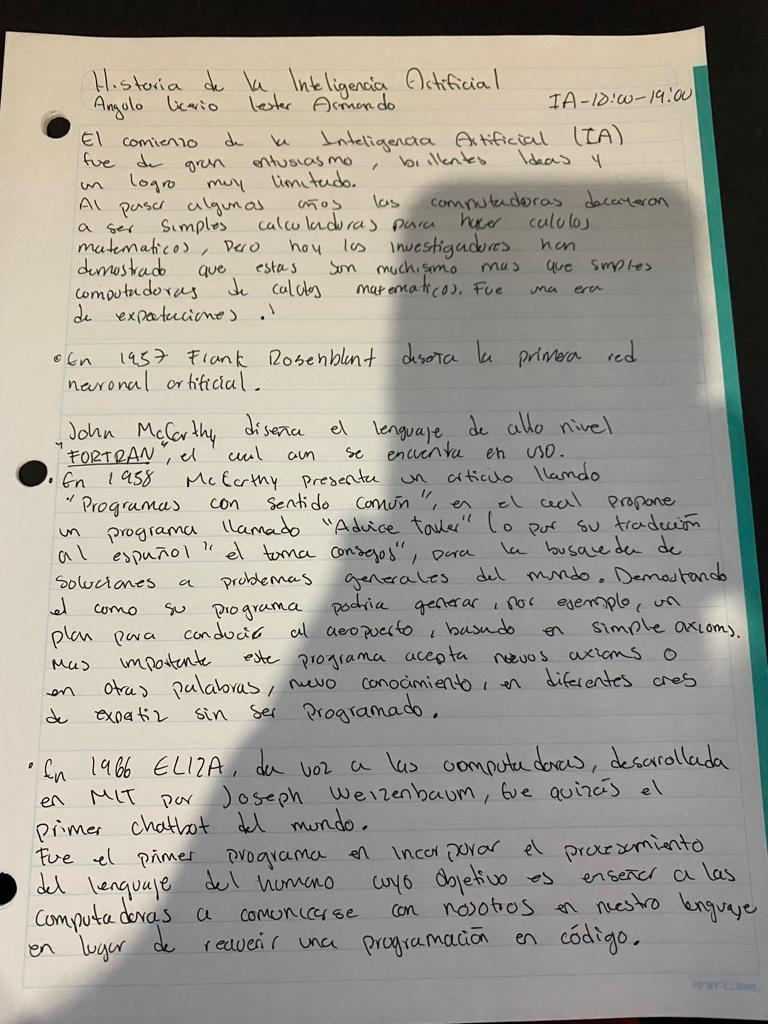 Historia de la Inteligencia Artificial
Angulo Licerio Lester Armando IA-18:00-19:00
El comienzo de la Inteligencia Artificial (IA)
fue de gran entusiasmo, brillentes Ideas y
un logro muy limitado.
Al pasar algunos años las computadoras decayeron
a ser simples calculadoras para hacer calulos
matematicos, Pero hoy los investigadores han
demostrado que estas son muchisimo mas que simples
computadoras de calculos matematicos. Fue una era
de expectaciones.
• En 1957 Frank Rosenblant diseña la primera red
neuronal artificial.
John McCarthy diseña el lenguaje de alto nivel
"FORTRAN", el cual aun se encuenta en uso.
• En 1958 McCarthy presenta un articulo llamdo
"Programas con sentido común", en el cual propone
un programa llamado "Advice taker" (o por su tradución
al español "el toma consejos", para la busqueda de
soluciones a problemas generales del mundo. Demostrando
el como su programa podria generar, por ejemplo, un
plan para conducir al aeropuerto, basado en simple axioms.
Mas importante este programa acepta nuevos axioms o
en otras palabras, nuevo conocimiento, en diferentes ares
de expertiz sin ser Programado.
• En 1966 ELIZA, da voz a las computadoras, desarrollada
en MIT por Joseph Weizenbaum, fue quizás el
primer chatbot del mundo.
Fue el primer programa en incorporar el procesamiento
del lenguaje del humano cuyo objetivo es enseñar a las
computadoras a comunicarse con nosotros en nuestro lenguaje
en lugar de requerir una programación en código.
FIRST CLASS